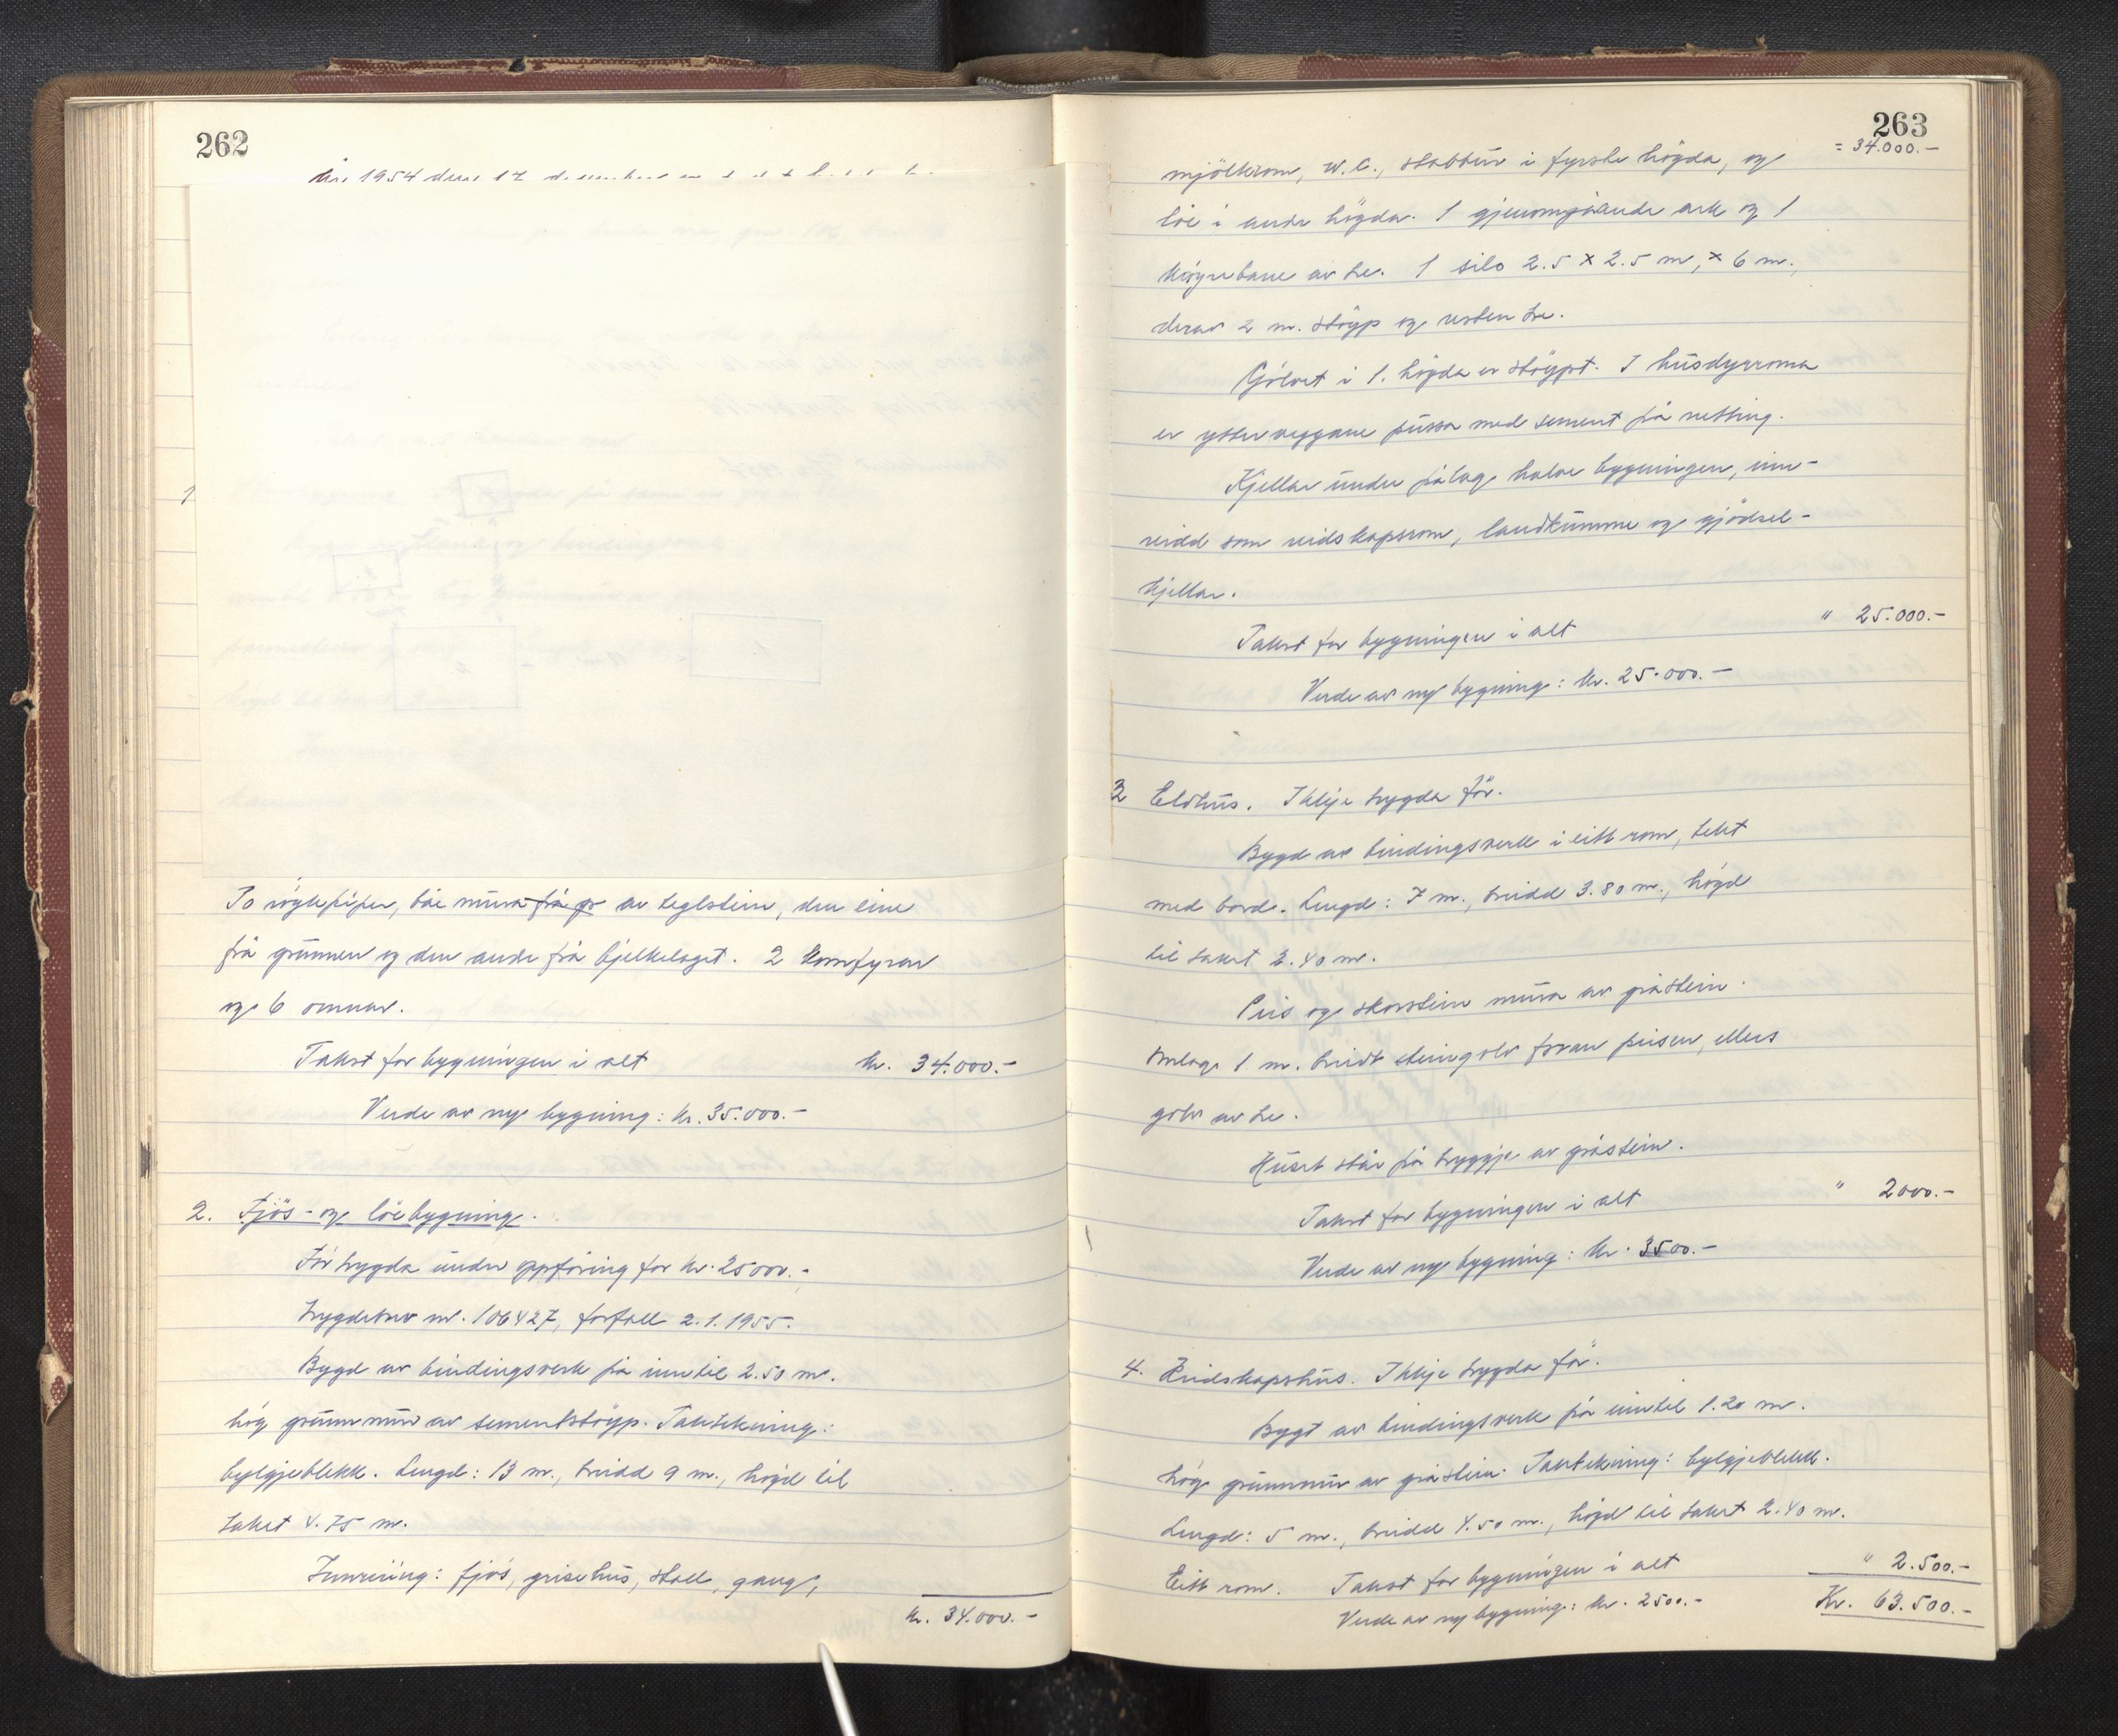 262
År 1954 den 17. desember
1
To røykpiper, båe mura frå gr av teglstein, den eine
frå grunnen og den andre frå bjelkelaget. 2 komfyrar
og 6 omnar.
Takst for bygningen i alt kr. 34.000.-
Verde av ny bygning: kr. 35.000.-
2. Fjøs- og løebygning.
Før trygda under oppføring for kr. 25000.-,
trygdebrev nr. 106427, forfall 2.1.1955.
Bygd av bindingsverk på inntil 2.50 m.
høg grunnmur av sementstøyp. Taktekning:
bylgjeblekk. Lengd: 13 m., breidd 9 m., høgd til
taket 4.75 m.
Innreiing: fjøs, grisehus, stall, gang,
kr. 34.000.-
263
= 34.000.-
mjølkrom, W.C., stabbur i fyrste høgda, og
løe i andre høgda. 1 gjenomgåande ark og 1
køyrebane av tre. 1 silo 2.5 x 2.5 m, x 6 m.,
derav 2 m. støyp og resten tre.
Golvet i 1. høgda er støypt. I husdyrroma
er ytterveggane pussa med sement på netting.
Kjellar under pålag halve bygningen, inn-
reidd som reidskapsrom, landkumme og gjødsel-
kjellar.
Takst for bygningen i alt " 25.000.-
Verde av ny bygning: kr. 25.000.-
3 Eldhus. Ikkje trygda før.
Bygd av bindingsverk i eitt rom, tekt
med bord. Lengd: 7 m., breidd 3.80 m., høgd
til taket 2.40 m.
Peis og skorstein mura av gråstein.
Omlag 1 m. breidt steingolv foran peisen, ellers
golv av tre.
Huset står på tryggje av gråstein.
Takst for bygningen i alt " 2000.-
Verde av ny bygning: kr. 3500.-
4. Reidskapshus. Ikkje trygda før.
Bygt av bindingsverk på inntil 1.20 m.
høg grunnmur av gråstein. Taktekning: bylgjeblekk.
Lengd: 5 m., breidd 4.50 m., høgd til taket 2.40 m.
Eitt rom. Takst for bygningen i alt " 2.500.-
Verde av ny bygning: kr. 2500.- Kr. 63.500.-